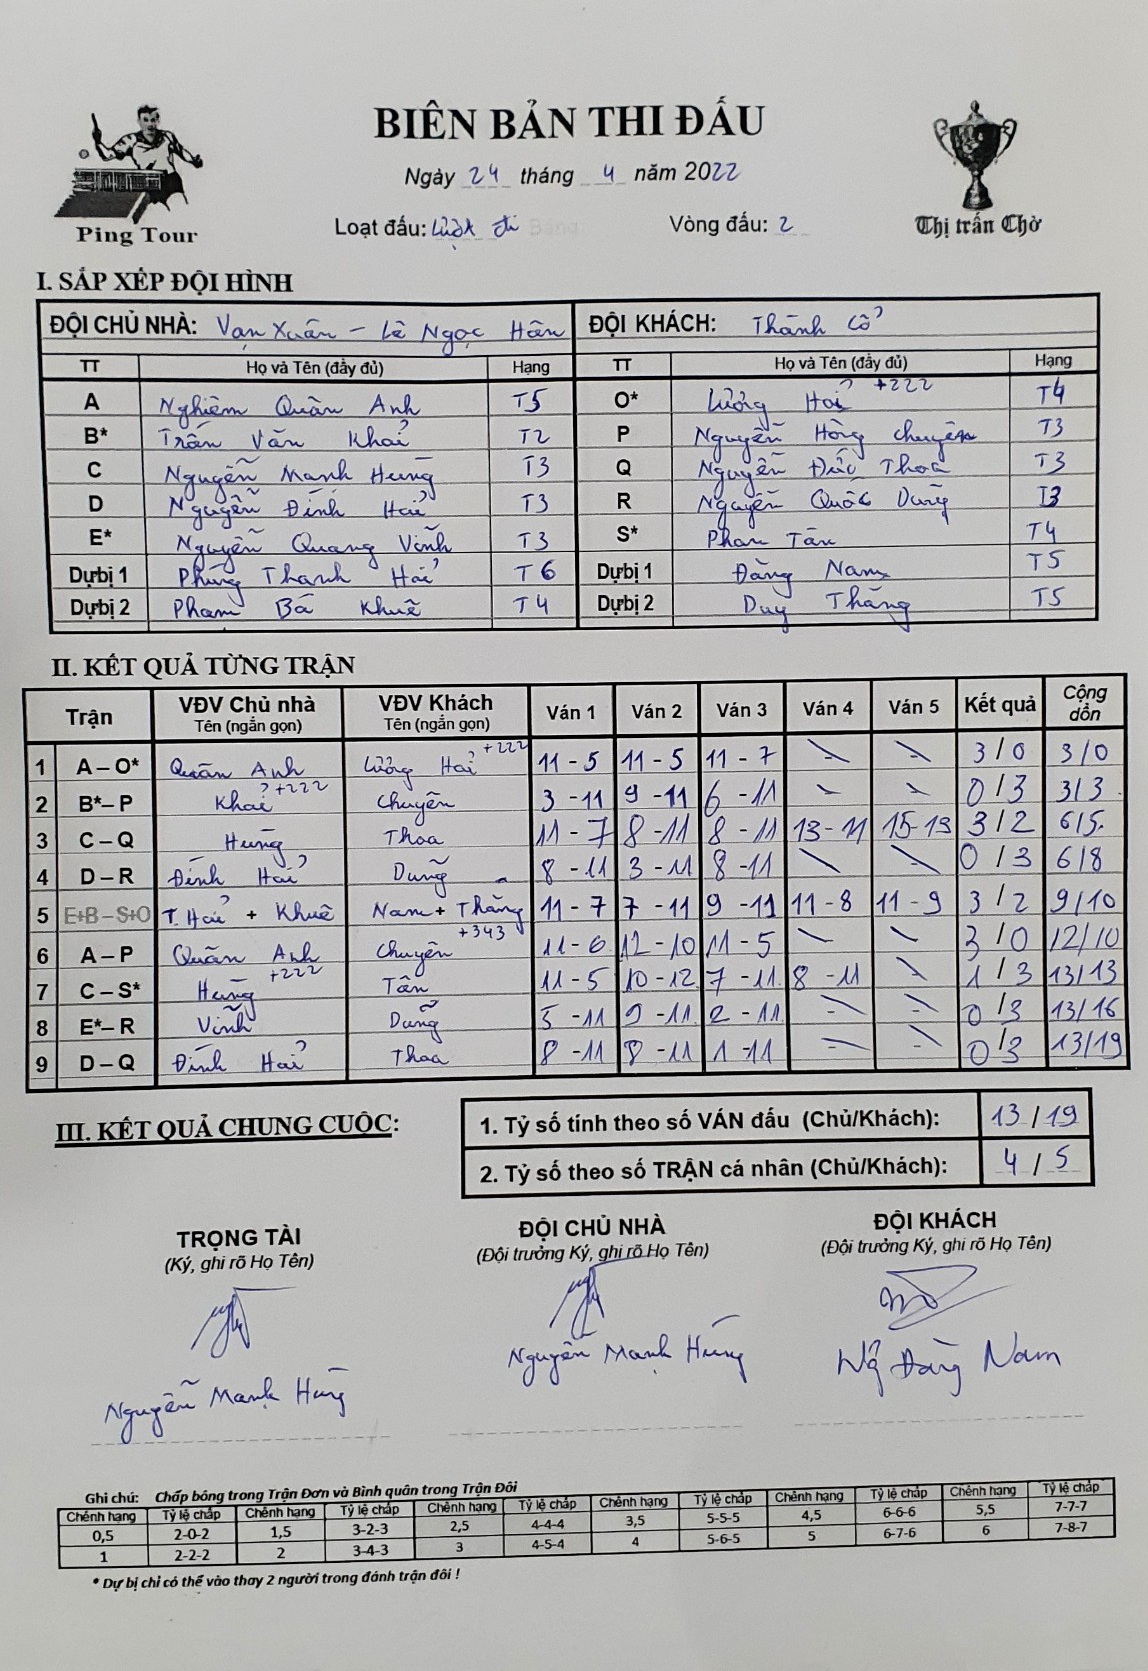 BIÊN BẢN THI ĐẤU
Ngày 24 tháng 4 năm 2022
Ping Tour
Loạt đấu: Lượt đi Vòng đấu: 2
Thị trấn Chờ
I. SẮP XẾP ĐỘI HÌNH
ĐỘI CHỦ NHÀ: Vạn Xuân - Lê Ngọc Hân ĐỘI KHÁCH: Thành Cổ
TT Họ và Tên (đầy đủ) Hạng TT Họ và Tên (đầy đủ) Hạng
A Nghiêm Quân Anh T5 O* Lưỡng Hải +222 T4
B* Trần Văn Khải T2 P Nguyễn Hồng Chuyên T3
C Nguyễn Mạnh Hùng T3 Q Nguyễn Đức Thoa T3
D Nguyễn Đình Hải T3 R Nguyễn Quốc Dũng T3
E* Nguyễn Quang Vinh T3 S* Phan Tân T4
Dựbị 1 Phùng Thanh Hải T6 Dựbị 1 Đăng Nam T5
Dựbị 2 Phạm Bá Khuê T4 Dựbị 2 Duy Thắng T5
II. KẾT QUẢ TỪNG TRẬN
Trận VĐV Chủ nhà Tên (ngắn gọn) VĐV Khách Tên (ngắn gọn) Ván 1 Ván 2 Ván 3 Ván 4 Ván 5 Kết quả Cộng dồn
1 A – O* Quân Anh Lưỡng Hải +222 11 - 5 11 - 5 11 - 7 3 / 0 3/0
2 B* – P Khải +222 Chuyên 3 - 11 9 - 11 6 - 11 0 / 3 3/3
3 C – Q Hùng Thoa 11 - 7 8 - 11 8 - 11 13 - 11 15 - 13 3 / 2 6/5
4 D – R Đình Hải Dũng 8 - 11 3 - 11 8 - 11 0 / 3 6/8
5 E+B – S+O T. Hải + Khuê Nam + Thắng 11 - 7 7 - 11 9 - 11 11 - 8 11 - 9 3 / 2 9/10
6 A – P Quân Anh Chuyên +343 11 - 6 12 - 10 11 - 5 3 / 0 12/10
7 C – S* Hùng +222 Tân 11 - 5 10 - 12 7 - 11 8 - 11 1 / 3 13/13
8 E* – R Vinh Dũng 5 - 11 9 - 11 2 - 11 0 / 3 13/16
9 D – Q Đình Hải Thoa 8 - 11 8 - 11 1 - 11 0 / 3 13/19
III. KẾT QUẢ CHUNG CUỘC:
1. Tỷ số tính theo số VÁN đấu (Chủ/Khách): 13 / 19
2. Tỷ số theo số TRẬN cá nhân (Chủ/Khách): 4 / 5
TRỌNG TÀI ĐỘI CHỦ NHÀ ĐỘI KHÁCH
(Ký, ghi rõ Họ Tên) (Đội trưởng Ký, ghi rõ Họ Tên) (Đội trưởng Ký, ghi rõ Họ Tên)
Nguyễn Mạnh Hùng Nguyễn Mạnh Hùng Ng Đăng Nam
Ghi chú: Chấp bóng trong Trận Đơn và Bình quân trong Trận Đôi
Chênh hạng Tỷ lệ chấp Chênh hạng Tỷ lệ chấp Chênh hạng Tỷ lệ chấp Chênh hạng Tỷ lệ chấp Chênh hạng Tỷ lệ chấp Chênh hạng Tỷ lệ chấp
0,5 2-0-2 1,5 3-2-3 2,5 4-4-4 3,5 5-5-5 4,5 6-6-6 5,5 7-7-7
1 2-2-2 2 3-4-3 3 4-5-4 4 5-6-5 5 6-7-6 6 7-8-7
* Dự bị chỉ có thể vào thay 2 người trong đánh trận đôi !